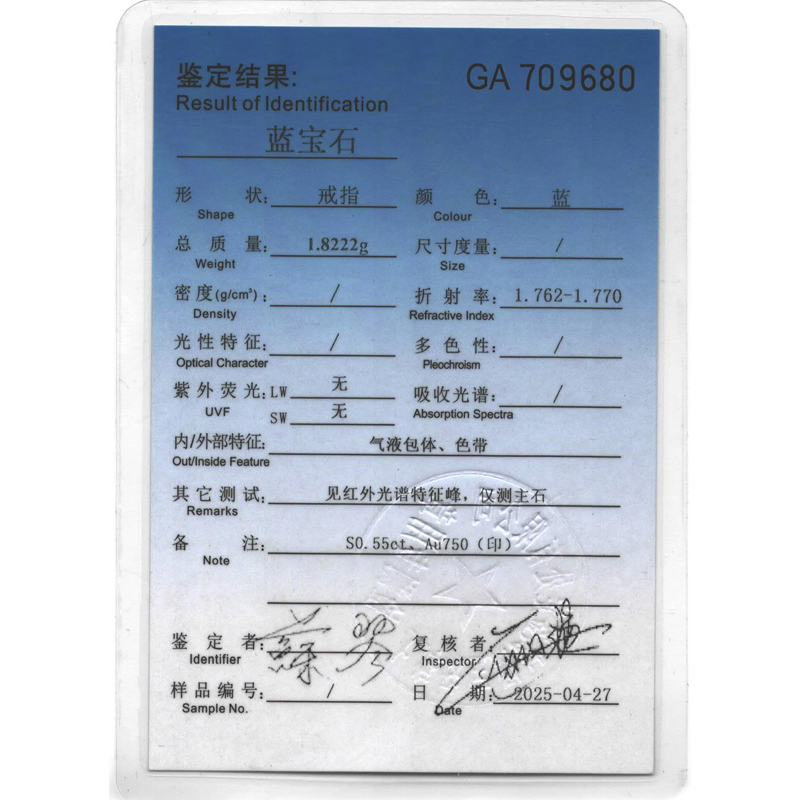 鉴定结果: GA 709680
Result of Identification
蓝宝石
形 状: 戒指 颜 色: 蓝
Shape Colour
总 质 量: 1.8222g 尺寸度量: /
Weight Size
密 度(g/cm³): / 折 射 率: 1.762-1.770
Density Refractive Index
光性特征: / 多 色 性: /
Optical Character Pleochroism
紫外荧光: LW 无 吸收光谱: /
UVF SW 无 Absorption Spectra
内/外部特征: 气液包体、色带
Out/Inside Feature
其它测试: 见红外光谱特征峰, 仅测主石
Remarks
备 注: S0.55ct、Au750（印）
Note
鉴 定 者: 复 核 者:
Identifier Inspector
样品编号: / 日 期: 2025-04-27
Sample No. Date